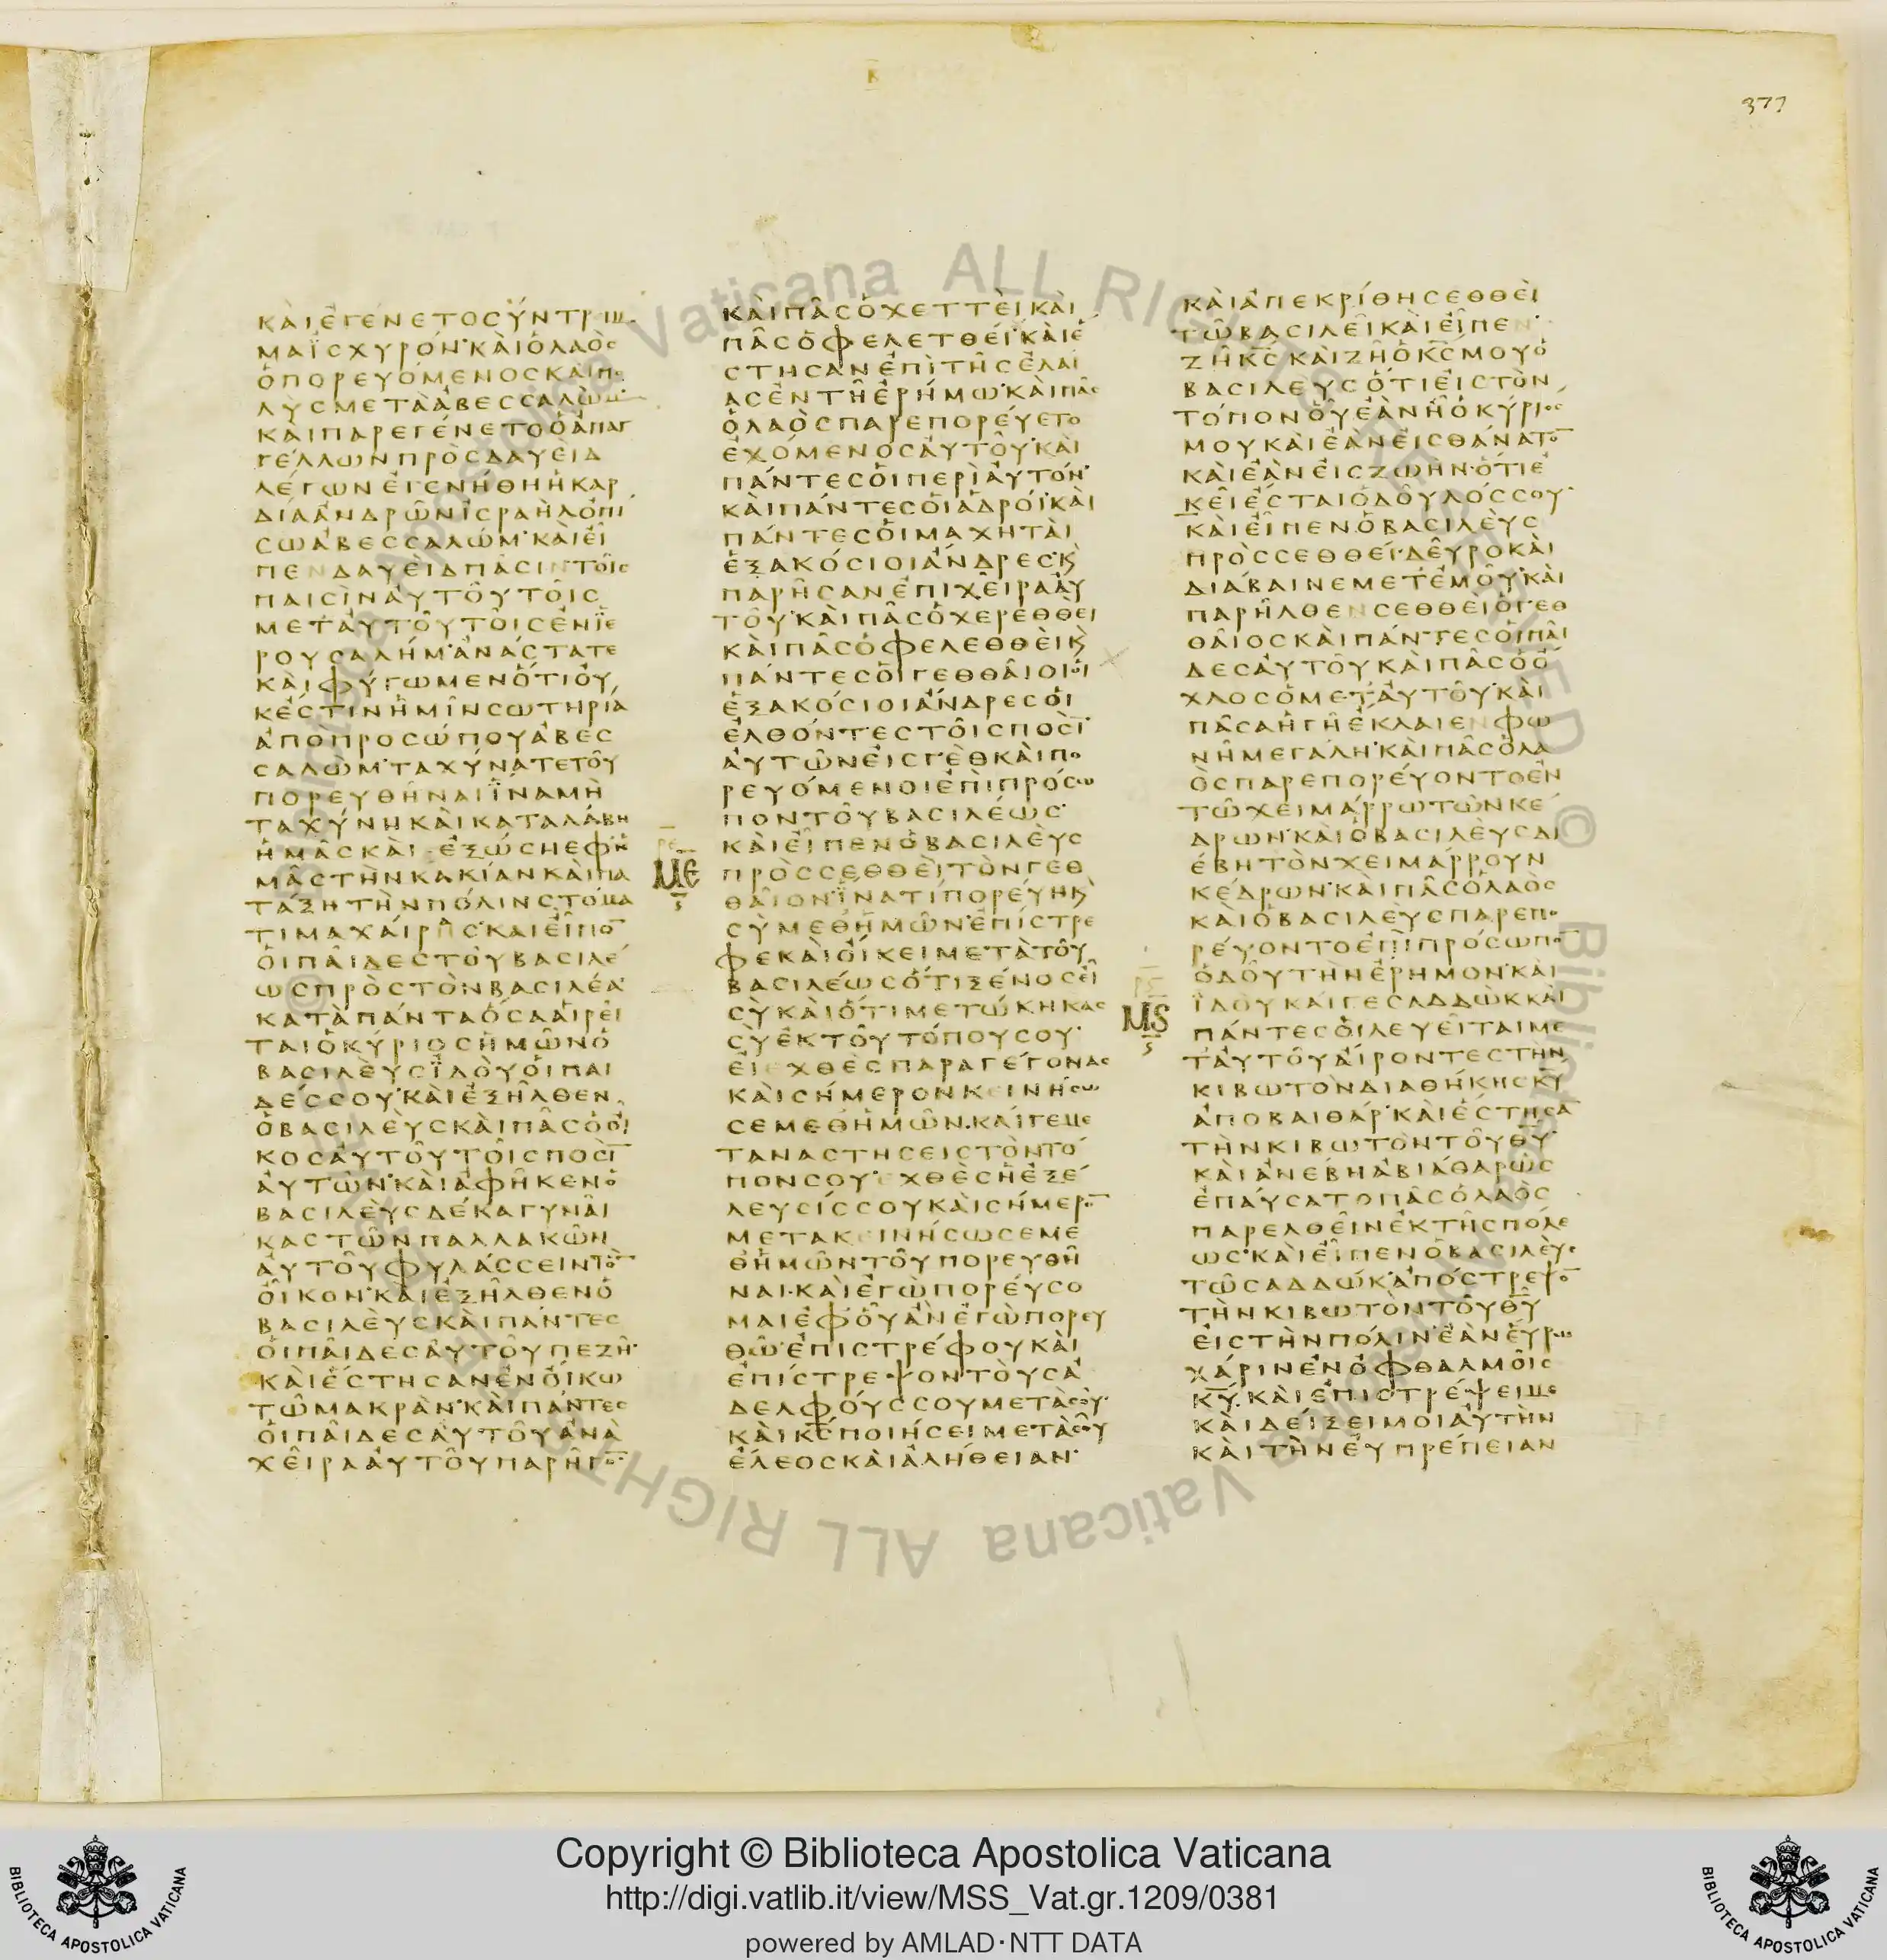 377
ΚΑΙΕΓΕΝΕΤΟΣΥΝΤΡΙΜ
ΜΑΙΣΧΥΡΟΝΚΑΙΟΛΑΟΣ
ΟΠΟΡΕΥΟΜΕΝΟΣΚΑΙΠΟ
ΛΥΣΜΕΤΑΑΒΕΣΣΑΛΩΜ
ΚΑΙΠΑΡΕΓΕΝΕΤΟΟΑΠΑΓ
ΓΕΛΛΩΝΠΡΟΣΔΑΥΕΙΔ
ΛΕΓΩΝΕΓΕΝΗΘΗΗΚΑΡ
ΔΙΑΑΝΔΡΩΝΙΣΡΑΗΛΟΠΙ
ΣΩΑΒΕΣΣΑΛΩΜΚΑΙΕΙ
ΠΕΝΔΑΥΕΙΔΠΑΣΙΝΤΟΙΣ
ΠΑΙΣΙΝΑΥΤΟΥΤΟΙΣ
ΜΕΤΑΥΤΟΥΤΟΙΣΕΝΙΕ
ΡΟΥΣΑΛΗΜΑΝΑΣΤΑΤΕ
ΚΑΙΦΥΓΩΜΕΝΟΤΙΟΥ
ΚΕΣΤΙΝΗΜΙΝΣΩΤΗΡΙΑ
ΑΠΟΠΡΟΣΩΠΟΥΑΒΕΣ
ΣΑΛΩΜΤΑΧΥΝΑΤΕΤΟΥ
ΠΟΡΕΥΘΗΝΑΙΙΝΑΜΗ
ΤΑΧΥΝΗΚΑΙΚΑΤΑΛΑΒΗ
ΗΜΑΣΚΑΙΕΞΩΣΗΕΦΗ
ΜΑΣΤΗΝΚΑΚΙΑΝΚΑΙΠΑ
ΤΑΞΗΤΗΝΠΟΛΙΝΣΤΟΜΑ
ΤΙΜΑΧΑΙΡΗΣΚΑΙΕΙΠΟ̅
ΟΙΠΑΙΔΕΣΤΟΥΒΑΣΙΛΕ
ΩΣΠΡΟΣΤΟΝΒΑΣΙΛΕΑ
ΚΑΤΑΠΑΝΤΑΟΣΑΑΙΡΕΙ
ΤΑΙΟΚΥΡΙΟΣΗΜΩΝΟ
ΒΑΣΙΛΕΥΣΙΔΟΥΟΙΠΑΙ
ΔΕΣΣΟΥΚΑΙΕΞΗΛΘΕΝ
ΟΒΑΣΙΛΕΥΣΚΑΙΠΑΣΟΟΙ
ΚΟΣΑΥΤΟΥΤΟΙΣΠΟΣΙ̅
ΑΥΤΩΝΚΑΙΑΦΗΚΕΝΟ
ΒΑΣΙΛΕΥΣΔΕΚΑΓΥΝΑΙ
ΚΑΣΤΩΝΠΑΛΛΑΚΩΝ
ΑΥΤΟΥΦΥΛΑΣΣΕΙΝΤΟ̅
ΟΙΚΟΝΚΑΙΕΞΗΛΘΕΝΟ
ΒΑΣΙΛΕΥΣΚΑΙΠΑΝΤΕΣ
ΟΙΠΑΙΔΕΣΑΥΤΟΥΠΕΖΗ
ΚΑΙΕΣΤΗΣΑΝΕΝΟΙΚΩ
ΤΩΜΑΚΡΑΝΚΑΙΠΑΝΤΕΣ
ΟΙΠΑΙΔΕΣΑΥΤΟΥΑΝΑ
ΧΕΙΡΑΑΥΤΟΥΠΑΡΗΓΟ̅
ΚΑΙΠΑΣΟΧΕΤΤΕΙΚΑΙ
ΠΑΣΟΦΕΛΕΤΘΕΙΚΑΙΕ
ΣΤΗΣΑΝΕΠΙΤΗΣΕΛΑΙ
ΑΣΕΝΤΗΕΡΗΜΩΚΑΙΠΑΣ
ΟΛΑΟΣΠΑΡΕΠΟΡΕΥΕΤΟ
ΕΧΟΜΕΝΟΣΑΥΤΟΥΚΑΙ
ΠΑΝΤΕΣΟΙΠΕΡΙΑΥΤΟΝ
ΚΑΙΠΑΝΤΕΣΟΙΑΔΡΟΙΚΑΙ
ΠΑΝΤΕΣΟΙΜΑΧΗΤΑΙ
ΕΞΑΚΟΣΙΟΙΑΝΔΡΕΣΚ
ΠΑΡΗΣΑΝΕΠΙΧΕΙΡΑΑΥ
ΤΟΥΚΑΙΠΑΣΟΧΕΡΕΘΘΕΙ
ΚΑΙΠΑΣΟΦΕΛΕΘΘΕΙΚ
ΠΑΝΤΕΣΟΙΓΕΘΘΑΙΟΙΟΙ
ΕΞΑΚΟΣΙΟΙΑΝΔΡΕΣΟΙ
ΕΛΘΟΝΤΕΣΤΟΙΣΠΟΣΙ̅
ΑΥΤΩΝΕΙΣΓΕΘΚΑΙΠΟ
ΡΕΥΟΜΕΝΟΙΕΠΙΠΡΟΣΩ
ΠΟΝΤΟΥΒΑΣΙΛΕΩΣ
ΚΑΙΕΙΠΕΝΟΒΑΣΙΛΕΥΣ
ΜΕ ΠΡΟΣΣΕΘΘΕΙΤΟΝΓΕΘ
ΘΑΙΟΝΙΝΑΤΙΠΟΡΕΥΗΚ
ΣΥΜΕΘΗΜΩΝΕΠΙΣΤΡΕ
ΦΕΚΑΙΟΙΚΕΙΜΕΤΑΤΟΥ
ΒΑΣΙΛΕΩΣΟΤΙΞΕΝΟΣΕΙ
ΣΥΚΑΙΟΤΙΜΕΤΩΚΗΚΑΣ
ΣΥΕΚΤΟΥΤΟΠΟΥΣΟΥ
ΕΙΕΧΘΕΣΠΑΡΑΓΕΓΟΝΑΣ
ΚΑΙΣΗΜΕΡΟΝΚΕΙΝΗΣΩ
ΣΕΜΕΘΗΜΩΝΚΑΙΓΕΜΕ
ΤΑΝΑΣΤΗΣΕΙΣΤΟΝΤΟ
ΠΟΝΣΟΥΕΧΘΕΣΗΕΞΕ
ΛΕΥΣΙΣΣΟΥΚΑΙΣΗΜΕΡΟ̅
ΜΕΤΑΚΕΙΝΗΣΩΣΕΜΕ
ΘΗΜΩΝΤΟΥΠΟΡΕΥΘΗ
ΝΑΙΚΑΙΕΓΩΠΟΡΕΥΣΟ
ΜΑΙΕΦΟΥΑΝΕΓΩΠΟΡΕΥ
ΘΩΕΠΙΣΤΡΕΦΟΥΚΑΙ
ΕΠΙΣΤΡΕΨΟΝΤΟΥΣΑ
ΔΕΛΦΟΥΣΣΟΥΜΕΤΑΣΟΥ
ΚΑΙΚ̅Σ̅ΠΟΙΗΣΕΙΜΕΤΑΣΟΥ
ΕΛΕΟΣΚΑΙΑΛΗΘΕΙΑΝ
ΚΑΙΑΠΕΚΡΙΘΗΣΕΘΘΕΙ
ΤΩΒΑΣΙΛΕΙΚΑΙΕΙΠΕΝ
ΖΗΚ̅Σ̅ΚΑΙΖΗΟΚ̅Σ̅ΜΟΥΟ
ΒΑΣΙΛΕΥΣΟΤΙΕΙΣΤΟΝ
ΤΟΠΟΝΟΥΕΑΝΗΟΚΥΡΙΟΣ
ΜΟΥΚΑΙΕΑΝΕΙΣΘΑΝΑΤΟ̅
ΚΑΙΕΑΝΕΙΣΖΩΗΝΟΤΙΕ
ΚΕΙΕΣΤΑΙΟΔΟΥΛΟΣΣΟΥ
ΚΑΙΕΙΠΕΝΟΒΑΣΙΛΕΥΣ
ΠΡΟΣΣΕΘΘΕΙΔΕΥΡΟΚΑΙ
ΔΙΑΒΑΙΝΕΜΕΤΕΜΟΥΚΑΙ
ΠΑΡΗΛΘΕΝΣΕΘΘΕΙΟΓΕΘ
ΘΑΙΟΣΚΑΙΠΑΝΤΕΣΟΙΠΑΙ
ΔΕΣΑΥΤΟΥΚΑΙΠΑΣΟΟ
ΧΛΟΣΟΜΕΤΑΥΤΟΥΚΑΙ
ΠΑΣΑΗΓΗΕΚΛΑΙΕΝΦΩ
ΝΗΜΕΓΑΛΗΚΑΙΠΑΣΟΛΑ
ΟΣΠΑΡΕΠΟΡΕΥΟΝΤΟΕΝ
ΤΩΧΕΙΜΑΡΡΩΤΩΝΚΕ
ΔΡΩΝΚΑΙΟΒΑΣΙΛΕΥΣΔΙ
ΕΒΗΤΟΝΧΕΙΜΑΡΡΟΥΝ
ΚΕΔΡΩΝΚΑΙΠΑΣΟΛΑΟΣ
ΚΑΙΟΒΑΣΙΛΕΥΣΠΑΡΕΠΟ
ΡΕΥΟΝΤΟΕΠΙΠΡΟΣΩΠΟ̅
ΟΔΟΥΤΗΝΕΡΗΜΟΝΚΑΙ
ΙΔΟΥΚΑΙΓΕΣΑΔΔΩΚΚΑΙ
ΜϚ ΠΑΝΤΕΣΟΙΛΕΥΕΙΤΑΙΜΕ
ΤΑΥΤΟΥΑΙΡΟΝΤΕΣΤΗΝ
ΚΙΒΩΤΟΝΔΙΑΘΗΚΗΣΚ̅Υ̅
ΑΠΟΒΑΙΘΑΡΚΑΙΕΣΤΗΣΑ̅
ΤΗΝΚΙΒΩΤΟΝΤΟΥΘ̅Υ̅
ΚΑΙΑΝΕΒΗΑΒΙΑΘΑΡΩΣ
ΕΠΑΥΣΑΤΟΠΑΣΟΛΑΟΣ
ΠΑΡΕΛΘΕΙΝΕΚΤΗΣΠΟΛΕ
ΩΣΚΑΙΕΙΠΕΝΟΒΑΣΙΛΕΥΣ
ΤΩΣΑΔΔΩΚΑΠΟΣΤΡΕΨΟ̅
ΤΗΝΚΙΒΩΤΟΝΤΟΥΘ̅Υ̅
ΕΙΣΤΗΝΠΟΛΙΝΕΑΝΕΥΡΩ
ΧΑΡΙΝΕΝΟΦΘΑΛΜΟΙΣ
Κ̅Υ̅ΚΑΙΕΠΙΣΤΡΕΨΕΙΜΕ
ΚΑΙΔΕΙΞΕΙΜΟΙΑΥΤΗΝ
ΚΑΙΤΗΝΕΥΠΡΕΠΕΙΑΝ
Vaticana ALL RIGHTS RESERVED © Biblioteca Apostolica Vaticana ALL RIGHTS
BIBLIOTECA APOSTOLICA VATICANA
Copyright © Biblioteca Apostolica Vaticana
http://digi.vatlib.it/view/MSS_Vat.gr.1209/0381
powered by AMLAD·NTT DATA
BIBLIOTECA APOSTOLICA VATICANA